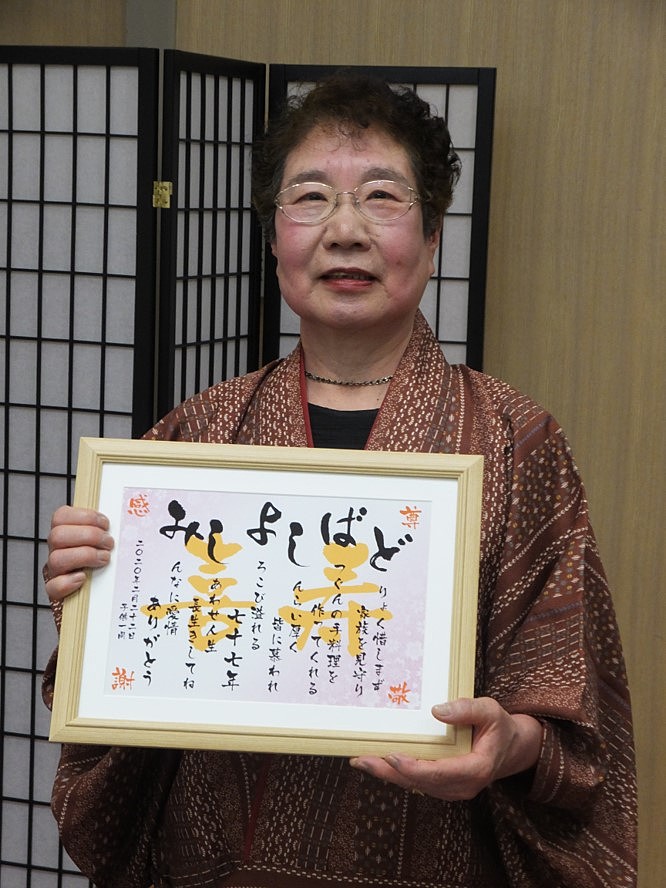 尊敬
感謝
喜寿
どりょく惜しまず
家族を見守り
ばつぐんの手料理を
作ってくれる
しんらい厚く
皆に慕われ
よろこび溢れる
七十七年
しあわせ人生
長生きしてね
みんなに愛情
ありがとう
二〇二〇年二月二十二日
子供一同